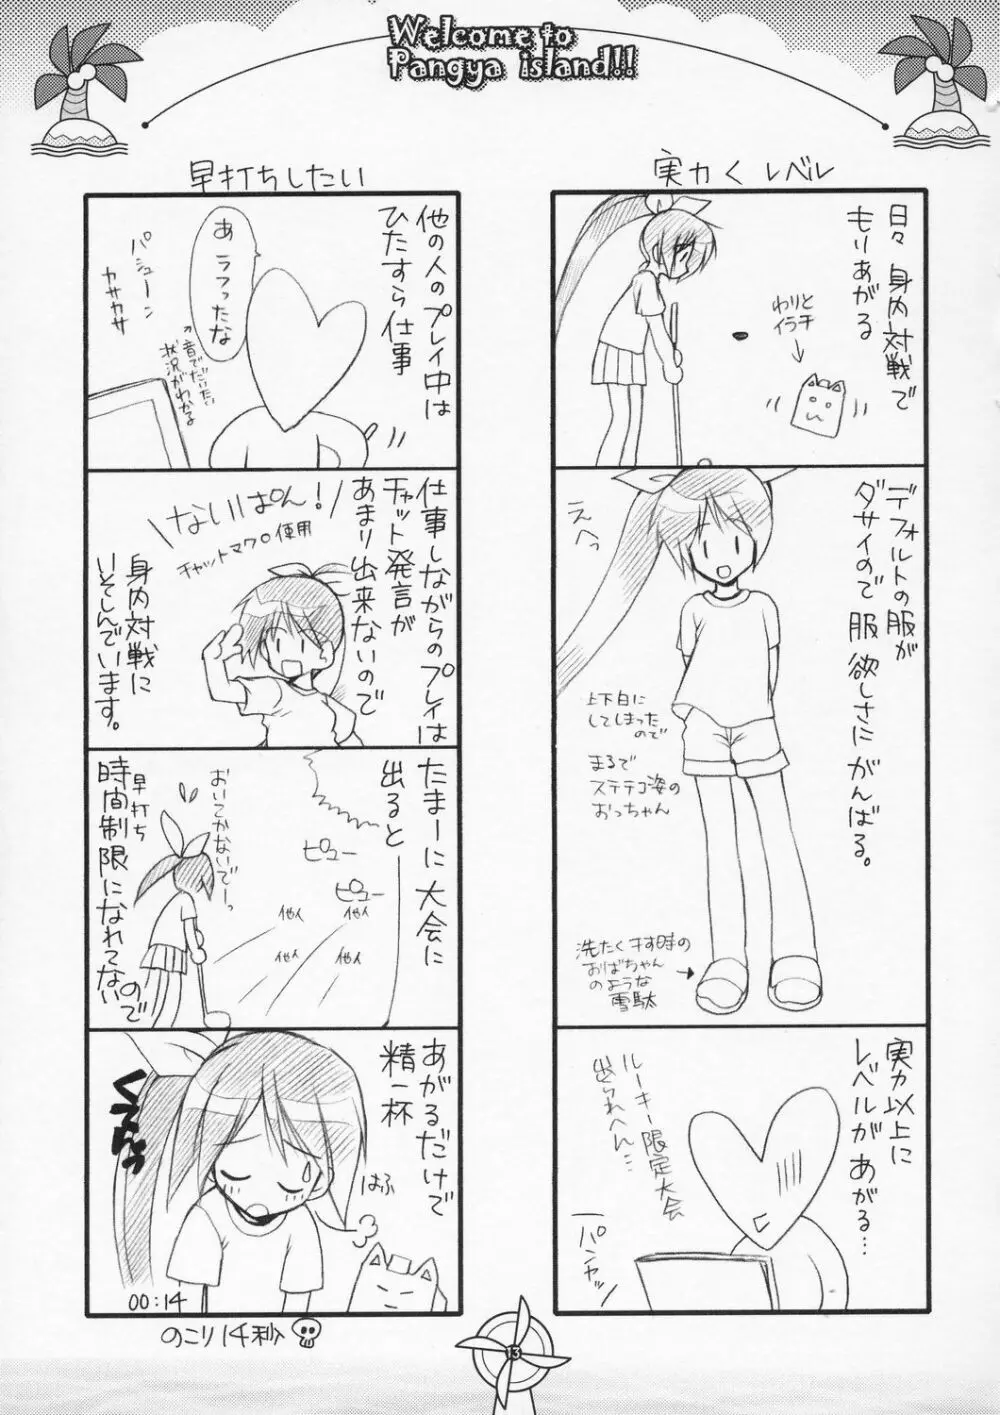 Welcome to
Pangya island!!
実力<レベル
日々身内対戦で
もりあがる
わりと
イラチ
デフォルトの服が
ダサイので服欲しさにがんばる。
えへっ
上下白に
してしまった
ので
まるで
ステテコ姿の
おっちゃん
洗たく干す時の
おばちゃん
のような
雪駄
実力以上に
レベルがあがる…
ルーキー限定大会
出られへん…
パンヤッ
早打ちしたい
他の人のプレイ中は
ひたすら仕事
あ ラフったな
パシューン
カサカサ
音でだいたい
状況がわかる
仕事しながらのプレイは
チャット発言が
あまり出来ないので
ないぱん!
チャットマクロ使用
身内対戦に
いそしんでいます。
たまーに大会に
出ると
ピュー
ピュー
他人
他人
他人
他人
おいてかないでーっ
早打ち
時間制限になれてないので
あがるだけで
精一杯
はふ
00:14
のこり14秒
13